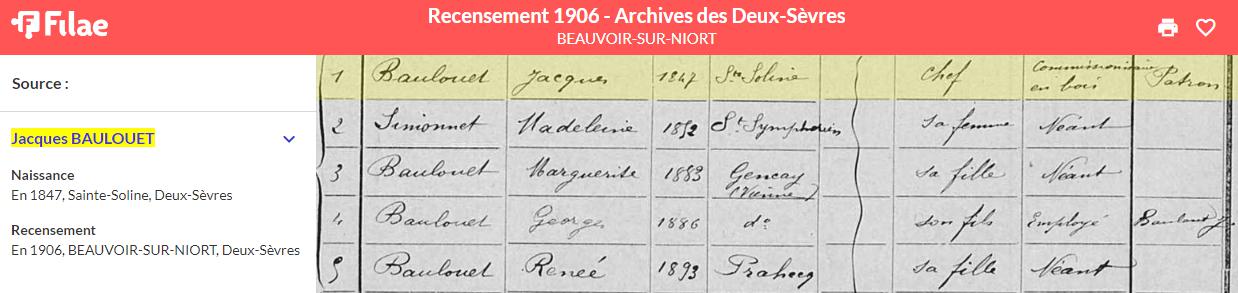 Filae
Recensement 1906 - Archives des Deux-Sèvres
BEAUVOIR-SUR-NIORT
Source :
Jacques BAULOUET
Naissance
En 1847, Sainte-Soline, Deux-Sèvres
Recensement
En 1906, BEAUVOIR-SUR-NIORT, Deux-Sèvres
1 Baulouet Jacques 1847 Ste Soline chef Commissionnaire en bois Patron
2 Simonnet Madeleine 1852 St Symphorien sa femme Néant
3 Baulouet Marguerite 1883 Gencay (Vienne) sa fille Néant
4 Baulouet Georges 1886 do son fils Employé Baulouet J.
5 Baulouet Reneé 1893 Prahecq sa fille Néant